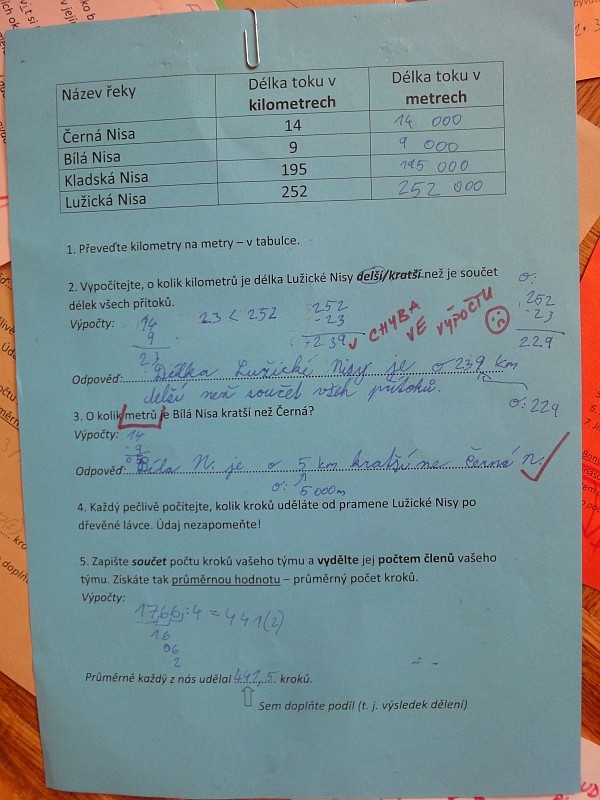 Název řeky Délka toku v kilometrech Délka toku v metrech
Černá Nisa 14 14 000
Bílá Nisa 9 9 000
Kladská Nisa 195 195 000
Lužická Nisa 252 252 000
1. Převeďte kilometry na metry – v tabulce.
2. Vypočítejte, o kolik kilometrů je délka Lužické Nisy delší/kratší než je součet
délek všech přítoků.
Výpočty: 14 23 < 252 252 CHYBA VE VÝPOČTU o: 252
9 -23 -23
23 239 229
Odpověď: Délka Lužické Nisy je o 239 km
delší než součet všech přítoků.
o: 229
3. O kolik metrů je Bílá Nisa kratší než Černá?
Výpočty: 14
- 9
05
Odpověď: Bílá N. je o 5 km kratší ne Černá N.
o: 5 000m
4. Každý pečlivě počítejte, kolik kroků uděláte od pramene Lužické Nisy po
dřevěné lávce. Údaj nezapomeňte!
5. Zapište součet počtu kroků vašeho týmu a vydělte jej počtem členů vašeho
týmu. Získáte tak průměrnou hodnotu – průměrný počet kroků.
Výpočty:
1766:4 = 441(2)
16
06
2
Průměrně každý z nás udělal 441,5 kroků.
Sem doplňte podíl (t. j. výsledek dělení)